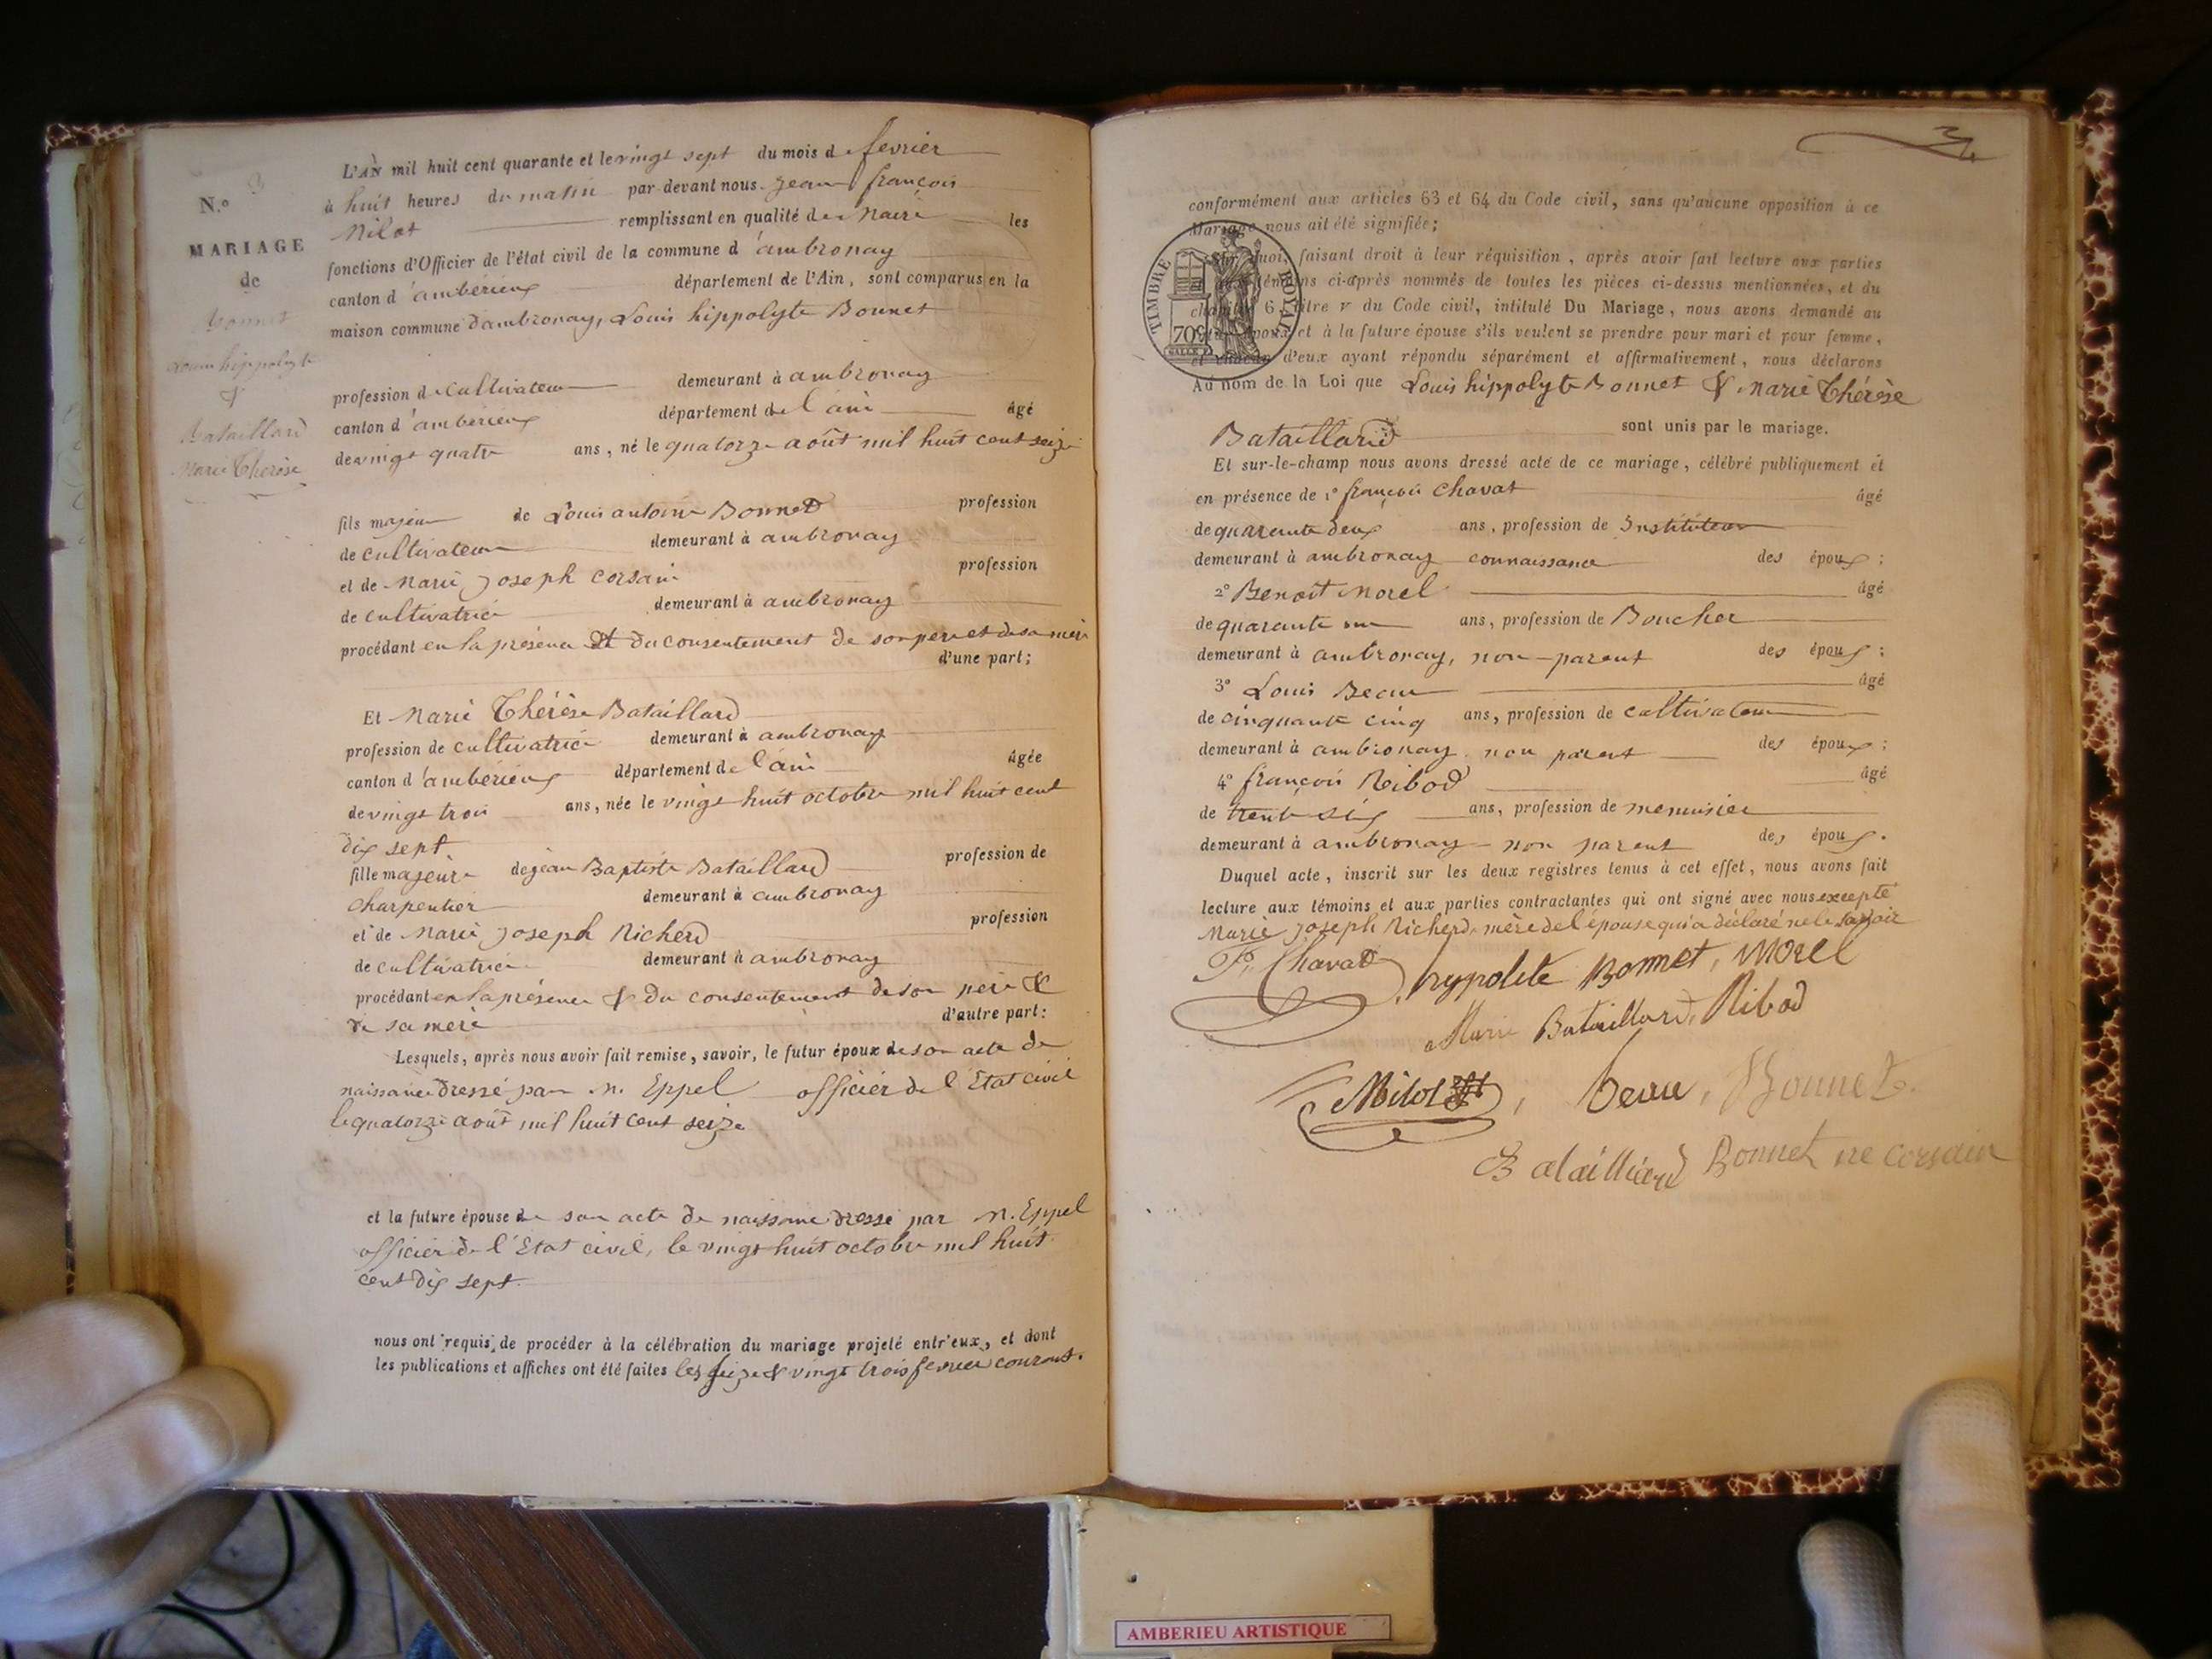 N.º 3
MARIAGE
de
Bonnet
Louis hippolyte
&
Bataillard
Marie Thérèse
L'AN mil huit cent quarante et le vingt sept du mois d fevrier
à huit heures du matin par-devant nous jean françois
Milot remplissant en qualité de Maire les
fonctions d'Officier de l'état civil de la commune d'ambronay
canton d'ambérieux département de l'Ain, sont comparus en la
maison commune d'ambronay, Louis hippolyte Bonnet
profession de cultivateur demeurant à ambronay
canton d'ambérieux département de l'ain âgé
de vingt quatre ans, né le quatorze août mil huit cent seize
fils majeur de Louis antoine Bonnet profession
de cultivateur demeurant à ambronay
et de Marie joseph corsain profession
de cultivatrice demeurant à ambronay
procédant en la présence et du consentement de son pere et de sa mere
d'une part;
Et Marie Thérèse Bataillard
profession de cultivatrice demeurant à ambronay
canton d'ambérieux département de l'ain âgée
de vingt trois ans, née le vingt huit octobre mil huit cent
dix sept
fille majeure de jean Baptiste Bataillard profession de
charpentier demeurant à ambronay
et de Marie joseph Richerd profession
de cultivatrice demeurant à ambronay
procédant en la présence & du consentement de son pere &
de sa mere d'autre part:
Lesquels, après nous avoir fait remise, savoir, le futur époux de son acte de
naissance dressé par M. Eppel officier de l'Etat civil
le quatorze août mil huit cent seize
et la future épouse de son acte de naissance dressé par M. Eppel
officier de l'Etat civil, le vingt huit octobre mil huit
cent dix sept.
nous ont requis de procéder à la célébration du mariage projeté entr'eux, et dont
les publications et affiches ont été faites les seize & vingt trois fevrier courant.
3
conformément aux articles 63 et 64 du Code civil, sans qu'aucune opposition à ce
Mariage nous ait été signifiée;
TIMBRE ROYAL
70c
quoi, faisant droit à leur réquisition, après avoir fait lecture aux parties
témoins ci-après nommés de toutes les pièces ci-dessus mentionnées, et du
chapitre 6, titre v du Code civil, intitulé Du Mariage, nous avons demandé au
époux et à la future épouse s'ils veulent se prendre pour mari et pour femme,
et chacun d'eux ayant répondu séparément et affirmativement, nous déclarons
Au nom de la Loi que Louis hippolyte Bonnet & Marie Thérèse
Bataillard sont unis par le mariage.
Et sur-le-champ nous avons dressé acte de ce mariage, célébré publiquement et
en présence de 1º françois Chavat âgé
de quarante deux ans, profession de Instituteur
demeurant à ambronay connaissance des époux;
2º Benoît Morel âgé
de quarante un ans, profession de Boucher
demeurant à ambronay, non-parent des époux;
3º Louis Beau âgé
de cinquante cinq ans, profession de cultivateur
demeurant à ambronay non parent des époux;
4º françois Ribod âgé
de trente six ans, profession de menuisier
demeurant à ambronay non parent des époux.
Duquel acte, inscrit sur les deux registres tenus à cet effet, nous avons fait
lecture aux témoins et aux parties contractantes qui ont signé avec nous excepté
Marie joseph Richerd, mère de l'épouse qui a déclaré ne le savoir
F. Chavat, hyppolite Bonnet, Morel
Marie Bataillard, Ribod
Milot, beau, Bonnet.
Batailliard Bonnet né corsain
AMBERIEU ARTISTIQUE